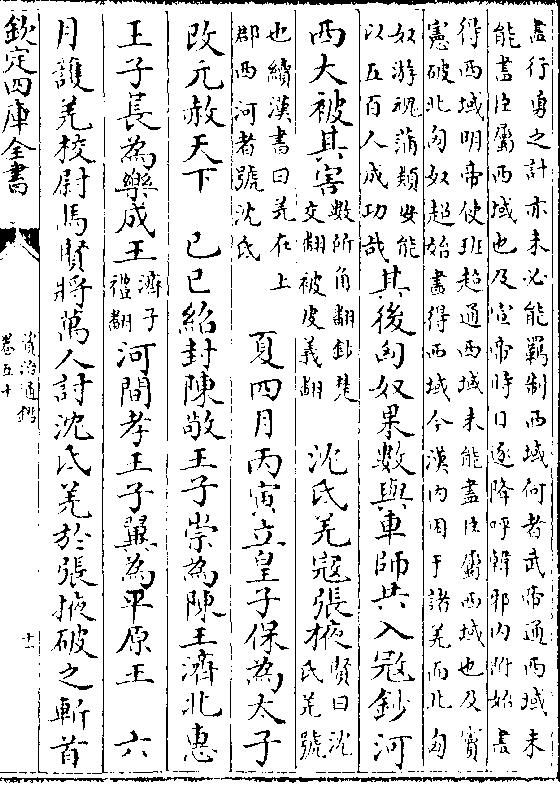 盡行勇之計亦未必能羈制西域何者武帝通西域未
能盡臣屬西域也及宣帝時日逐降呼韓邪内附始盡
得西域明帝使班超通西域未能盡臣屬西域也及竇
憲破北匈奴超始盡得西域今漢内困于諸羌而北匈
奴游魂蒲類安能
以五百人成功哉
其後匈奴果數與車師共入寇鈔河
西大被其害
數所角翻鈔楚
交翻被皮義翻
沈氏羌寇張掖
賢曰沈
氏羌號
也續漢書曰羌在上
郡西河者號沈氏
夏四月丙寅立皇子保為太子
改元赦天下　己巳紹封陳敬王子崇為陳王濟北惠
王子萇為樂成王
濟子
禮翻
河間孝王子翼為平原王　六
月護羌校尉馬賢將萬人討沈氏羌於張掖破之斬首
欽定四庫全書
資治通鑑
卷五十
十一